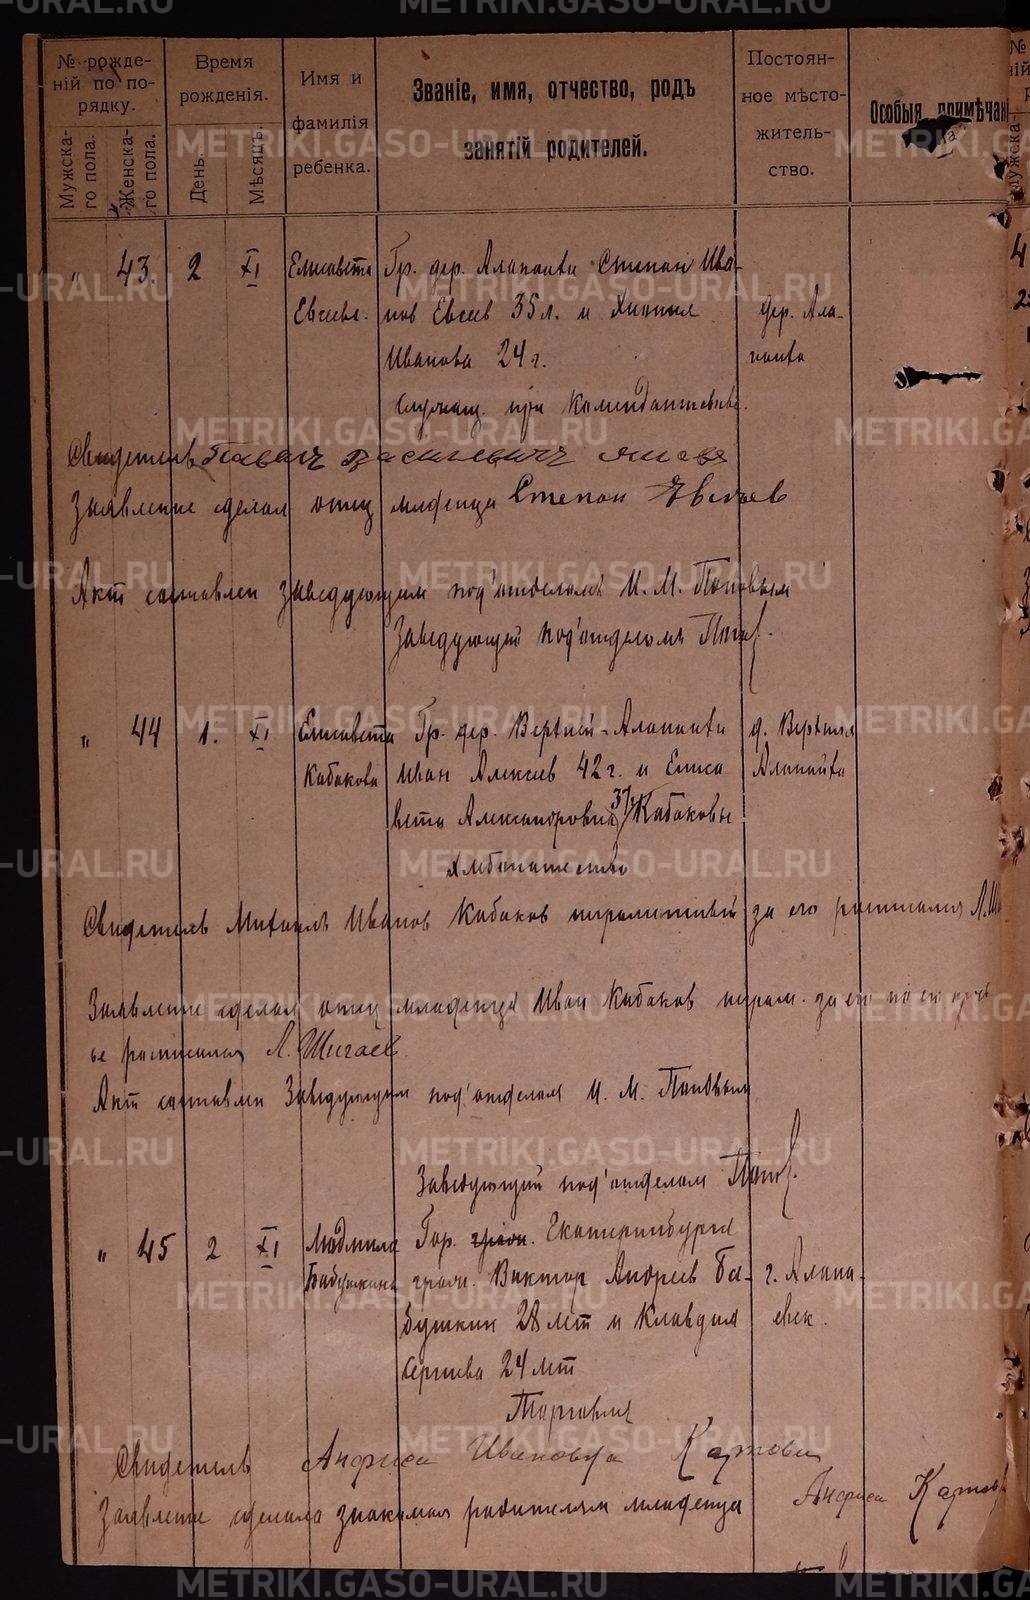 № рожде-
ній по по-
рядку.
Мужска-
го пола.
Женска-
го пола.
Время
рожденія.
День.
Мѣсяцъ.
Имя и
фамилія
ребенка.
Званіе, имя, отчество, родъ
занятій родителей.
Постоян-
ное мѣсто-
житель-
ство.
Особыя примѣчан
" 43. 2 XI
Елисавета
Евсеева.
Гр. дер. Алапаихи Степан Ива-
нов Евсеев 35 л. и
Иванова 24 г.
Служащ. при
дер. Ала-
паиха
Свидетель
Заявление сделал отец младенца Степан Евсеев
Акт составлен Заведующим под'отделом И. М. Поповым
Заведующий под'отделом Попов.
" 44 1. XI
Елисавета
Кабакова
Гр. дер. Верхней-Алапаихи
Иван Алексеев 42 г. и Елиса
вета Александровна 37 Кабаковы
Хлебопашество
д. Верхняя
Алапаиха
Свидетель Михаил Иванов Кабаков неграмотный за его расписался Л. Ши
Заявление сделал отец младенца Иван Кабаков неграм. за его по его прозь
бе расписался Л. Шигаев
Акт составлен Заведующим под'отделом И. М. Поповым
Заведующий под'отделом Попов.
" 45 2 XI
Людмила
Бабушкина
Гор. Екатеринбурга
граж. Виктор Андреев Ба-
бушкин 28 лет и Клавдия
Сергеева 24 лет
Торговля
г. Алапа-
евск.
Свидетель Анфиса Ивановна Карпова
Заявление сделала знакомая родителям младенца Анфиса Карпов
METRIKI.GASO-URAL.RU